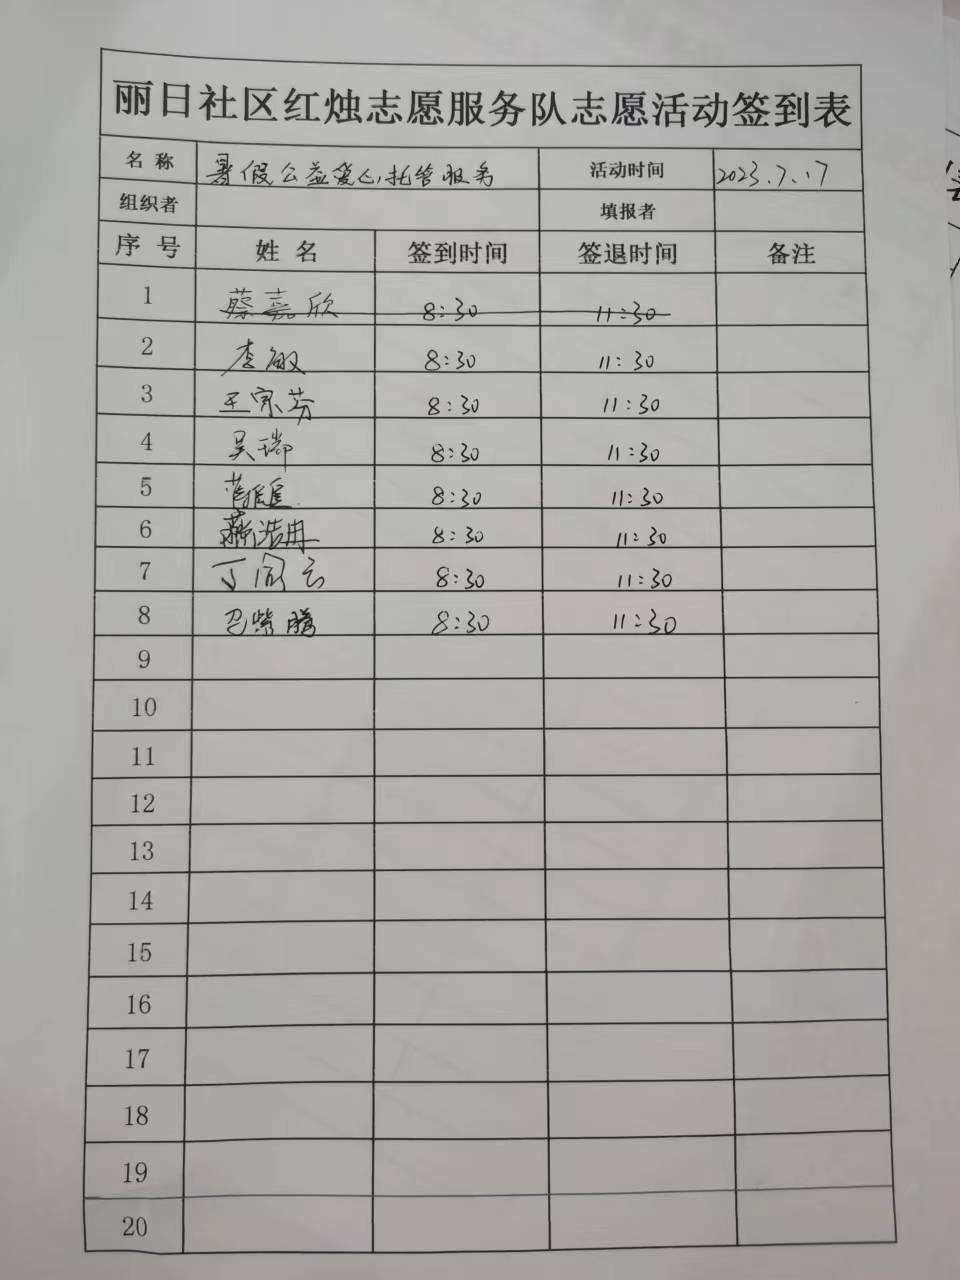 丽日社区红烛志愿服务队志愿活动签到表
名称 暑假公益爱心托管服务 活动时间 2023.7.17
组织者 填报者
序号 姓名 签到时间 签退时间 备注
1 蔡嘉欣 8:30 11:30
2 李敏 8:30 11:30
3 王家芬 8:30 11:30
4 吴瑞 8:30 11:30
5 8:30 11:30
6 浩冉 8:30 11:30
7 丁闵云 8:30 11:30
8 紫腾 8:30 11:30
9
10
11
12
13
14
15
16
17
18
19
20